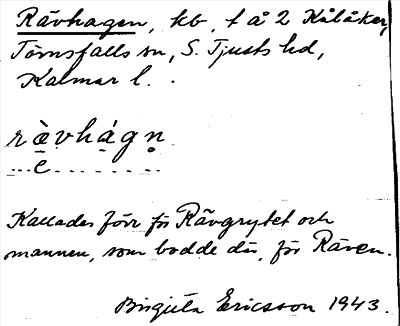 Rävhagen, kb, t å 2 Kålåker,
Törnsfalls sn, S. Tjusts hd,
Kalmar l.
rȁ̤vhág̣n̥
...e........
Kallades förr för Rävgrytet och
mannen, som bodde där, för Räven.
Birgitta Ericsson 1943.